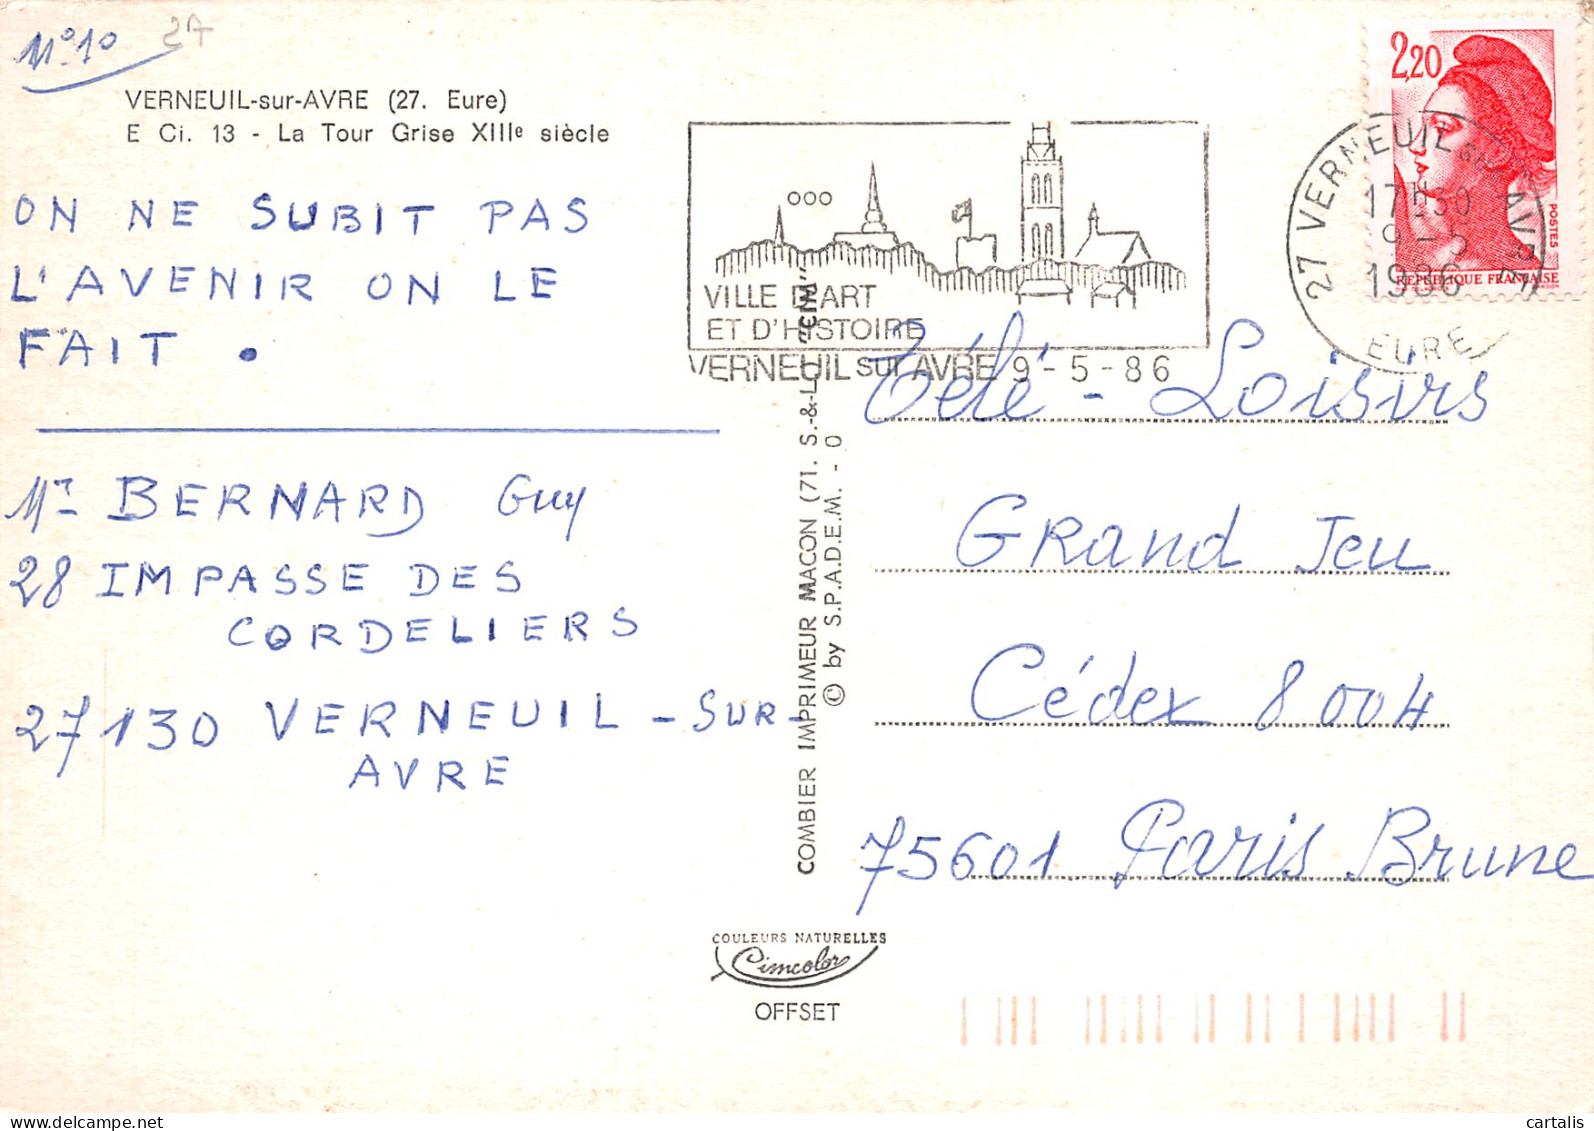 N° 10
27
VERNEUIL-sur-AVRE (27. Eure)
E Ci. 13 - La Tour Grise XIIIe siècle
ON NE SUBIT PAS
L'AVENIR ON LE
FAIT .
Mr BERNARD Guy
28 IMPASSE DES
CORDELIERS
27130 VERNEUIL - SUR -
AVRE
VILLE D'ART
ET D'HISTOIRE
VERNEUIL sur AVRE 9-5-86
2,20
POSTES
REPUBLIQUE FRANÇAISE
27 VERNEUIL SUR AVRE
17H30
9-5
1986
EURE
COMBIER IMPRIMEUR MACON (71. S.-&-L.) "CIM"
© by S.P.A.D.E.M. - O
Télé - Loisirs
Grand Jeu
Cédex 8004
75601 Paris Brune
COULEURS NATURELLES
Cimcolor
OFFSET
cartalis
delcampe.net